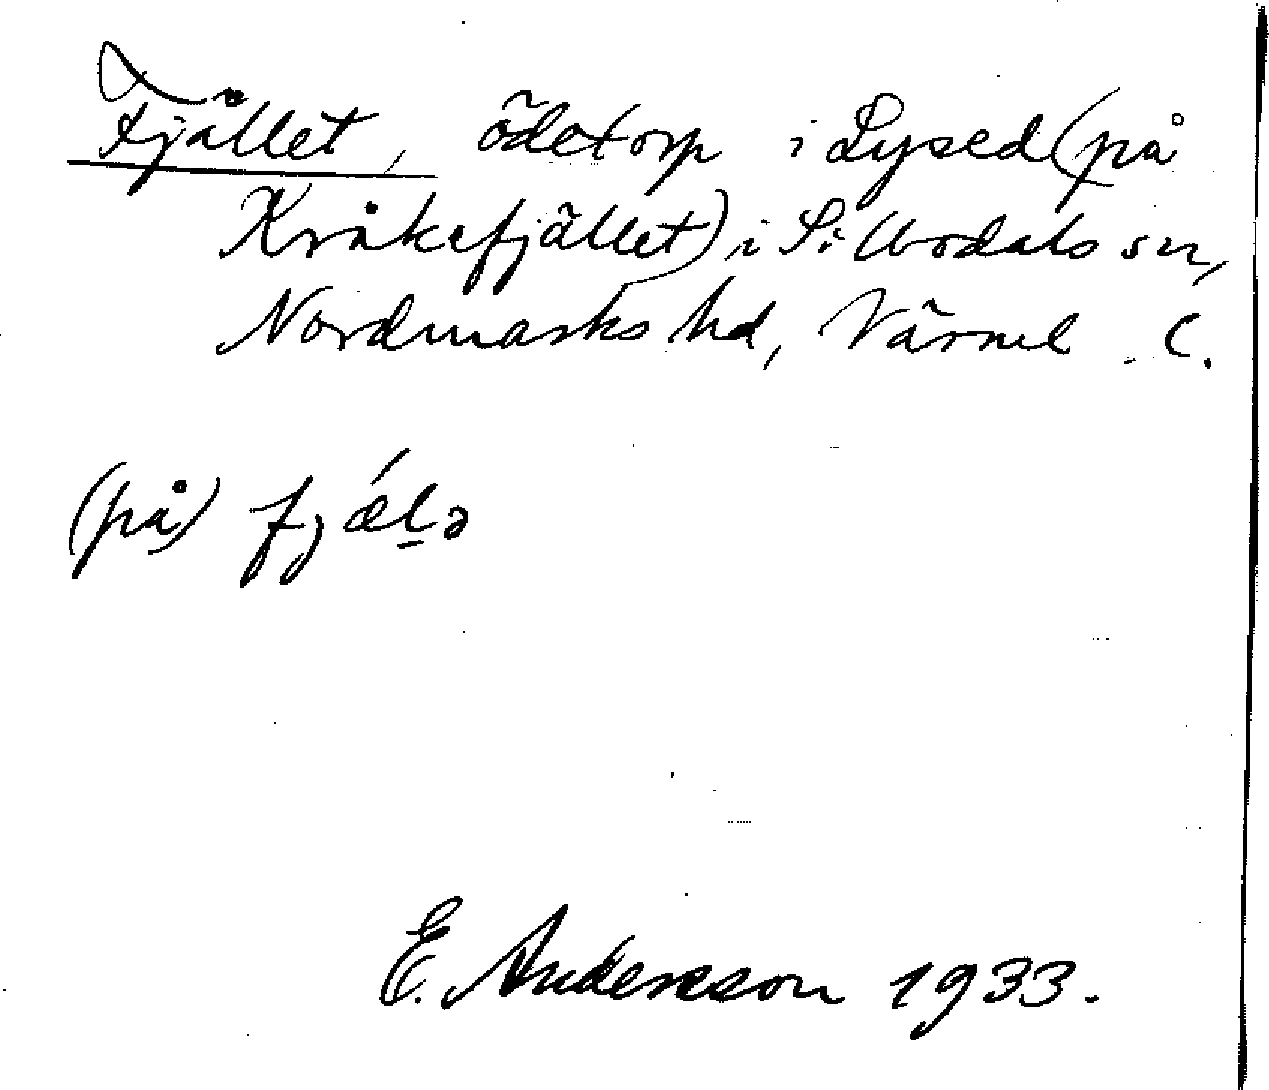 Fjället, ödetorp i Lysed (på
Kråkefjället) i Sillbodals sn,
Nordmarks hd, Värml. l.
(på) fjæ̀l̠ə
E. Andersson 1933.